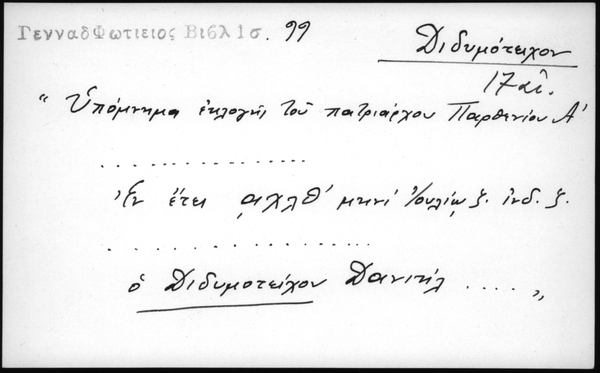 ΓενναδΦωτιειος Βιβλ 1σ. 99
Διδυμότειχον
17 αἰ.
“ Ὑπόμνημα ἐκλογῆς τοῦ πατριάρχου Παρθενίου Α΄
................
Ἐν ἔτει ͵αχλθ΄ μηνί Ἰουλίῳ ξ. ἰνδ. ξ.
.....................
ὁ Διδυμοτείχου Δανιήλ .... „